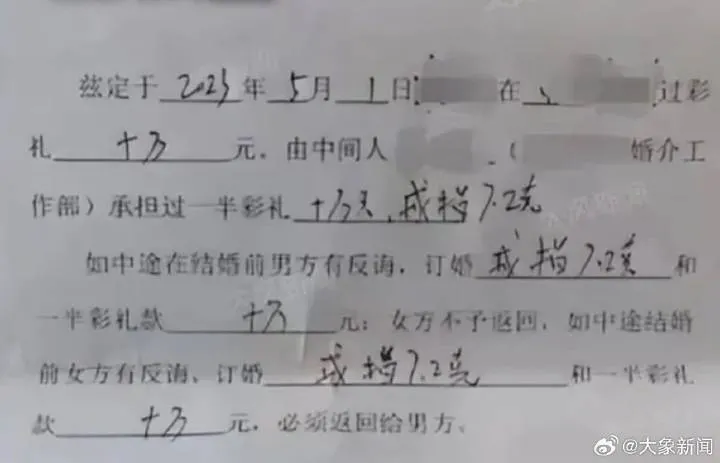 兹定于2023年5月1日 在 过彩
礼十万元，由中间人 （ 婚介工
作部）承担过一半彩礼十万元，戒指7.2克
如中途在结婚前男方有反诲，订婚戒指7.2克和
一半彩礼款十万元；女方不予返回，如中途结婚
前女方有反诲、订婚戒指7.2克和一半彩礼
款十万元，必须返回给男方、
@大象新闻